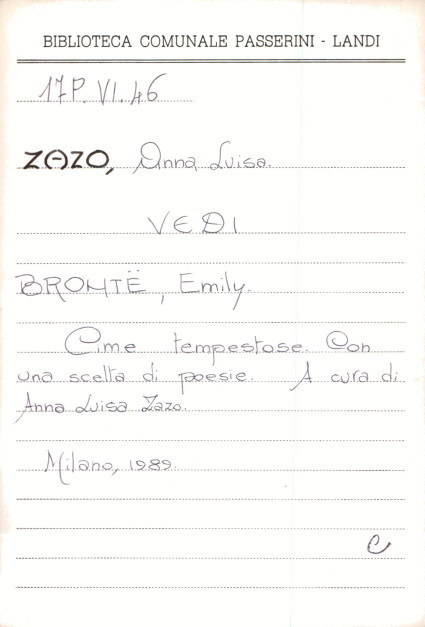 BIBLIOTECA COMUNALE PASSERINI - LANDI
17P. VI. 46
ZAZO, Anna Luisa.
VEDI
BRONTË, Emily.
Cime tempestose. Con
una scelta di poesie. A cura di
Anna Luisa Zazo.
Milano, 1989.
e